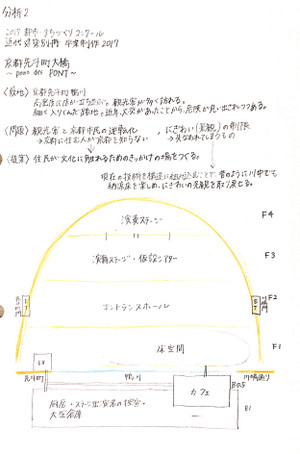 分析2
2017 都市・まちづくりコンクール
近代建築別冊 卒業制作2017
京都先斗町大橋
〜pono dei PONT〜
〈敷地〉京都先斗町 鴨川
高密度に店が立ち並び、観光客が多く訪れる。
細く入りくんだ路地で近年、火災があったことから、危険が見い出されつつある。
〈問題〉観光客と京都市民の逆転化 、にぎわい(景観)の制限
→京都に住む人が京都を知らない →失なわれてしまうもの
〈提案〉住民が文化に触れるためのきっかけの場をつくる。
現在の技術を構造に組み込むことで、昔のように川中でも
納涼床を楽しめ、にぎわいの景観を取り戻せる。
演奏ステージ F4
演舞ステージ・仮設シアター F3
エントランスホール F2
床空間 F1
先斗町
鴨川
川端通り
カフェ
B0.5
厨房・ステージ出演者の控室・
大型倉庫
B1